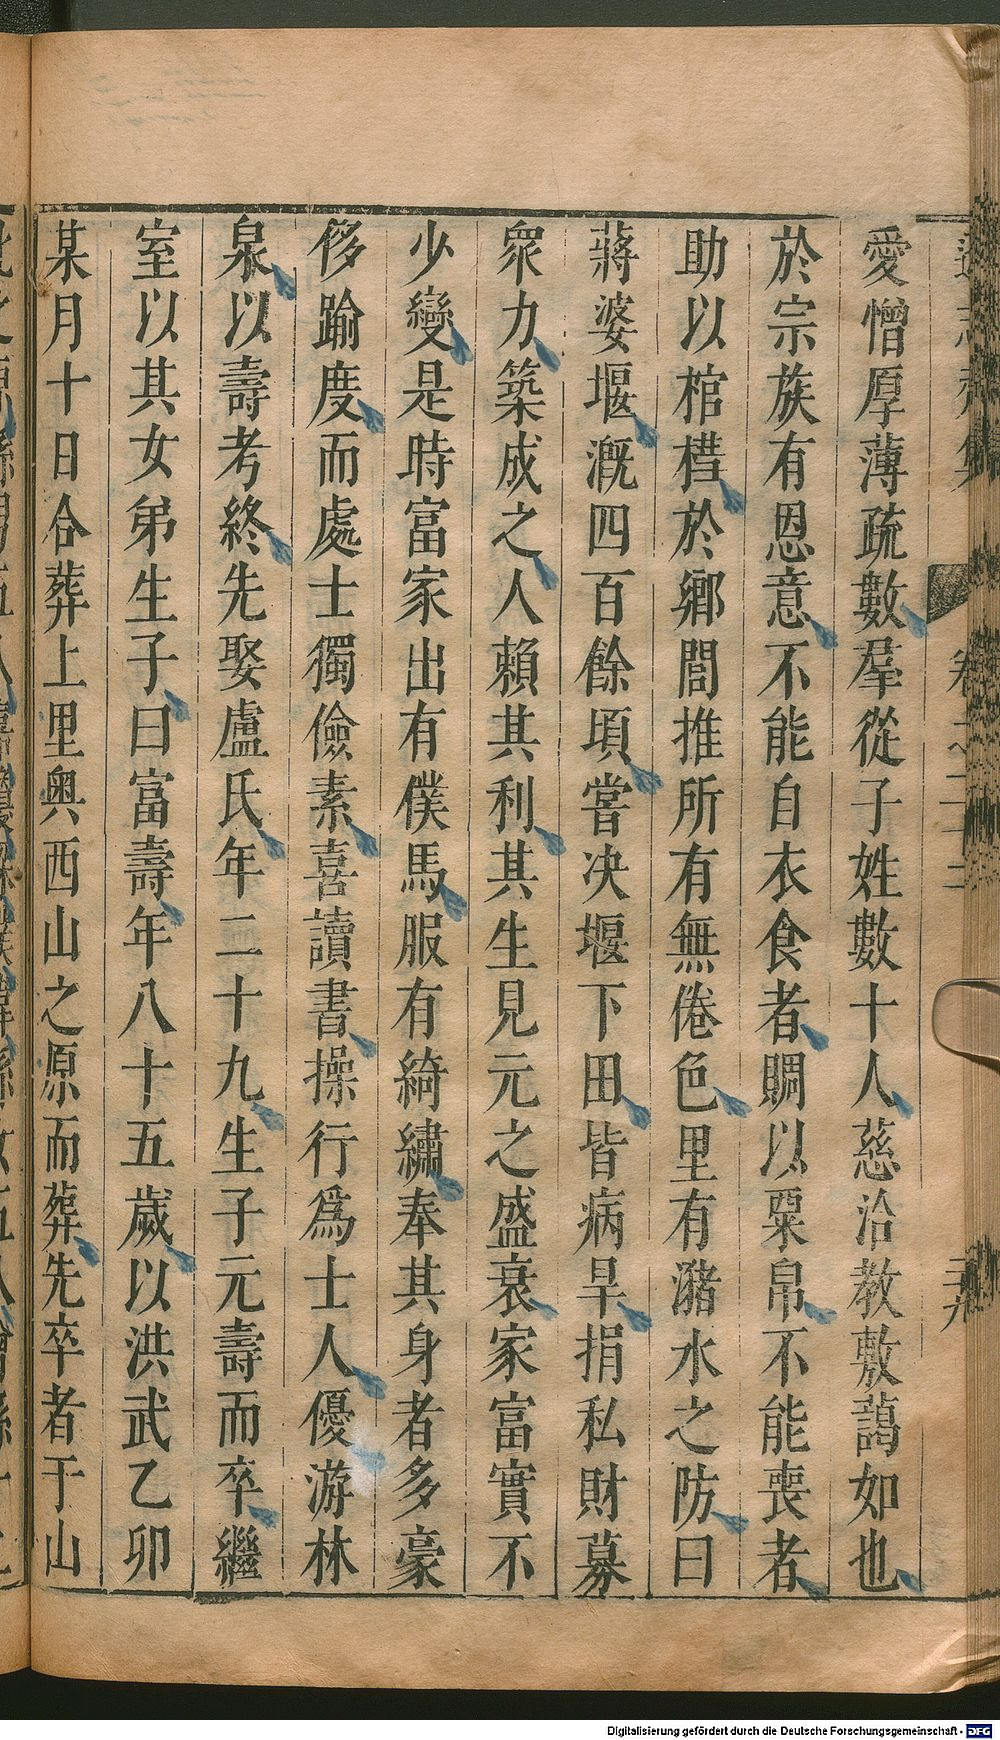 愛憎厚薄疏數羣從子姓數十人慈洽教敷藹如也
於宗族有恩意不能自衣食者賙以粟帛不能喪者
助以棺槥於鄉閭推所有無倦色里有瀦水之防曰
蔣婆堰溉四百餘頃嘗决堰下田皆病旱捐私財募
衆力築成之人賴其利其生見元之盛衰家富實不
少變是時富家出有僕馬服有綺繡奉其身者多豪
侈踰度而處士獨儉素喜讀書操行爲士人優游林
泉以壽考終先娶盧氏年二十九生子元壽而卒繼
室以其女弟生子曰富壽年八十五歲以洪武乙卯
某月十日合葬上里奧西山之原而葬先卒者于山
Digitalisierung gefördert durch die Deutsche Forschungsgemeinschaft - DFG